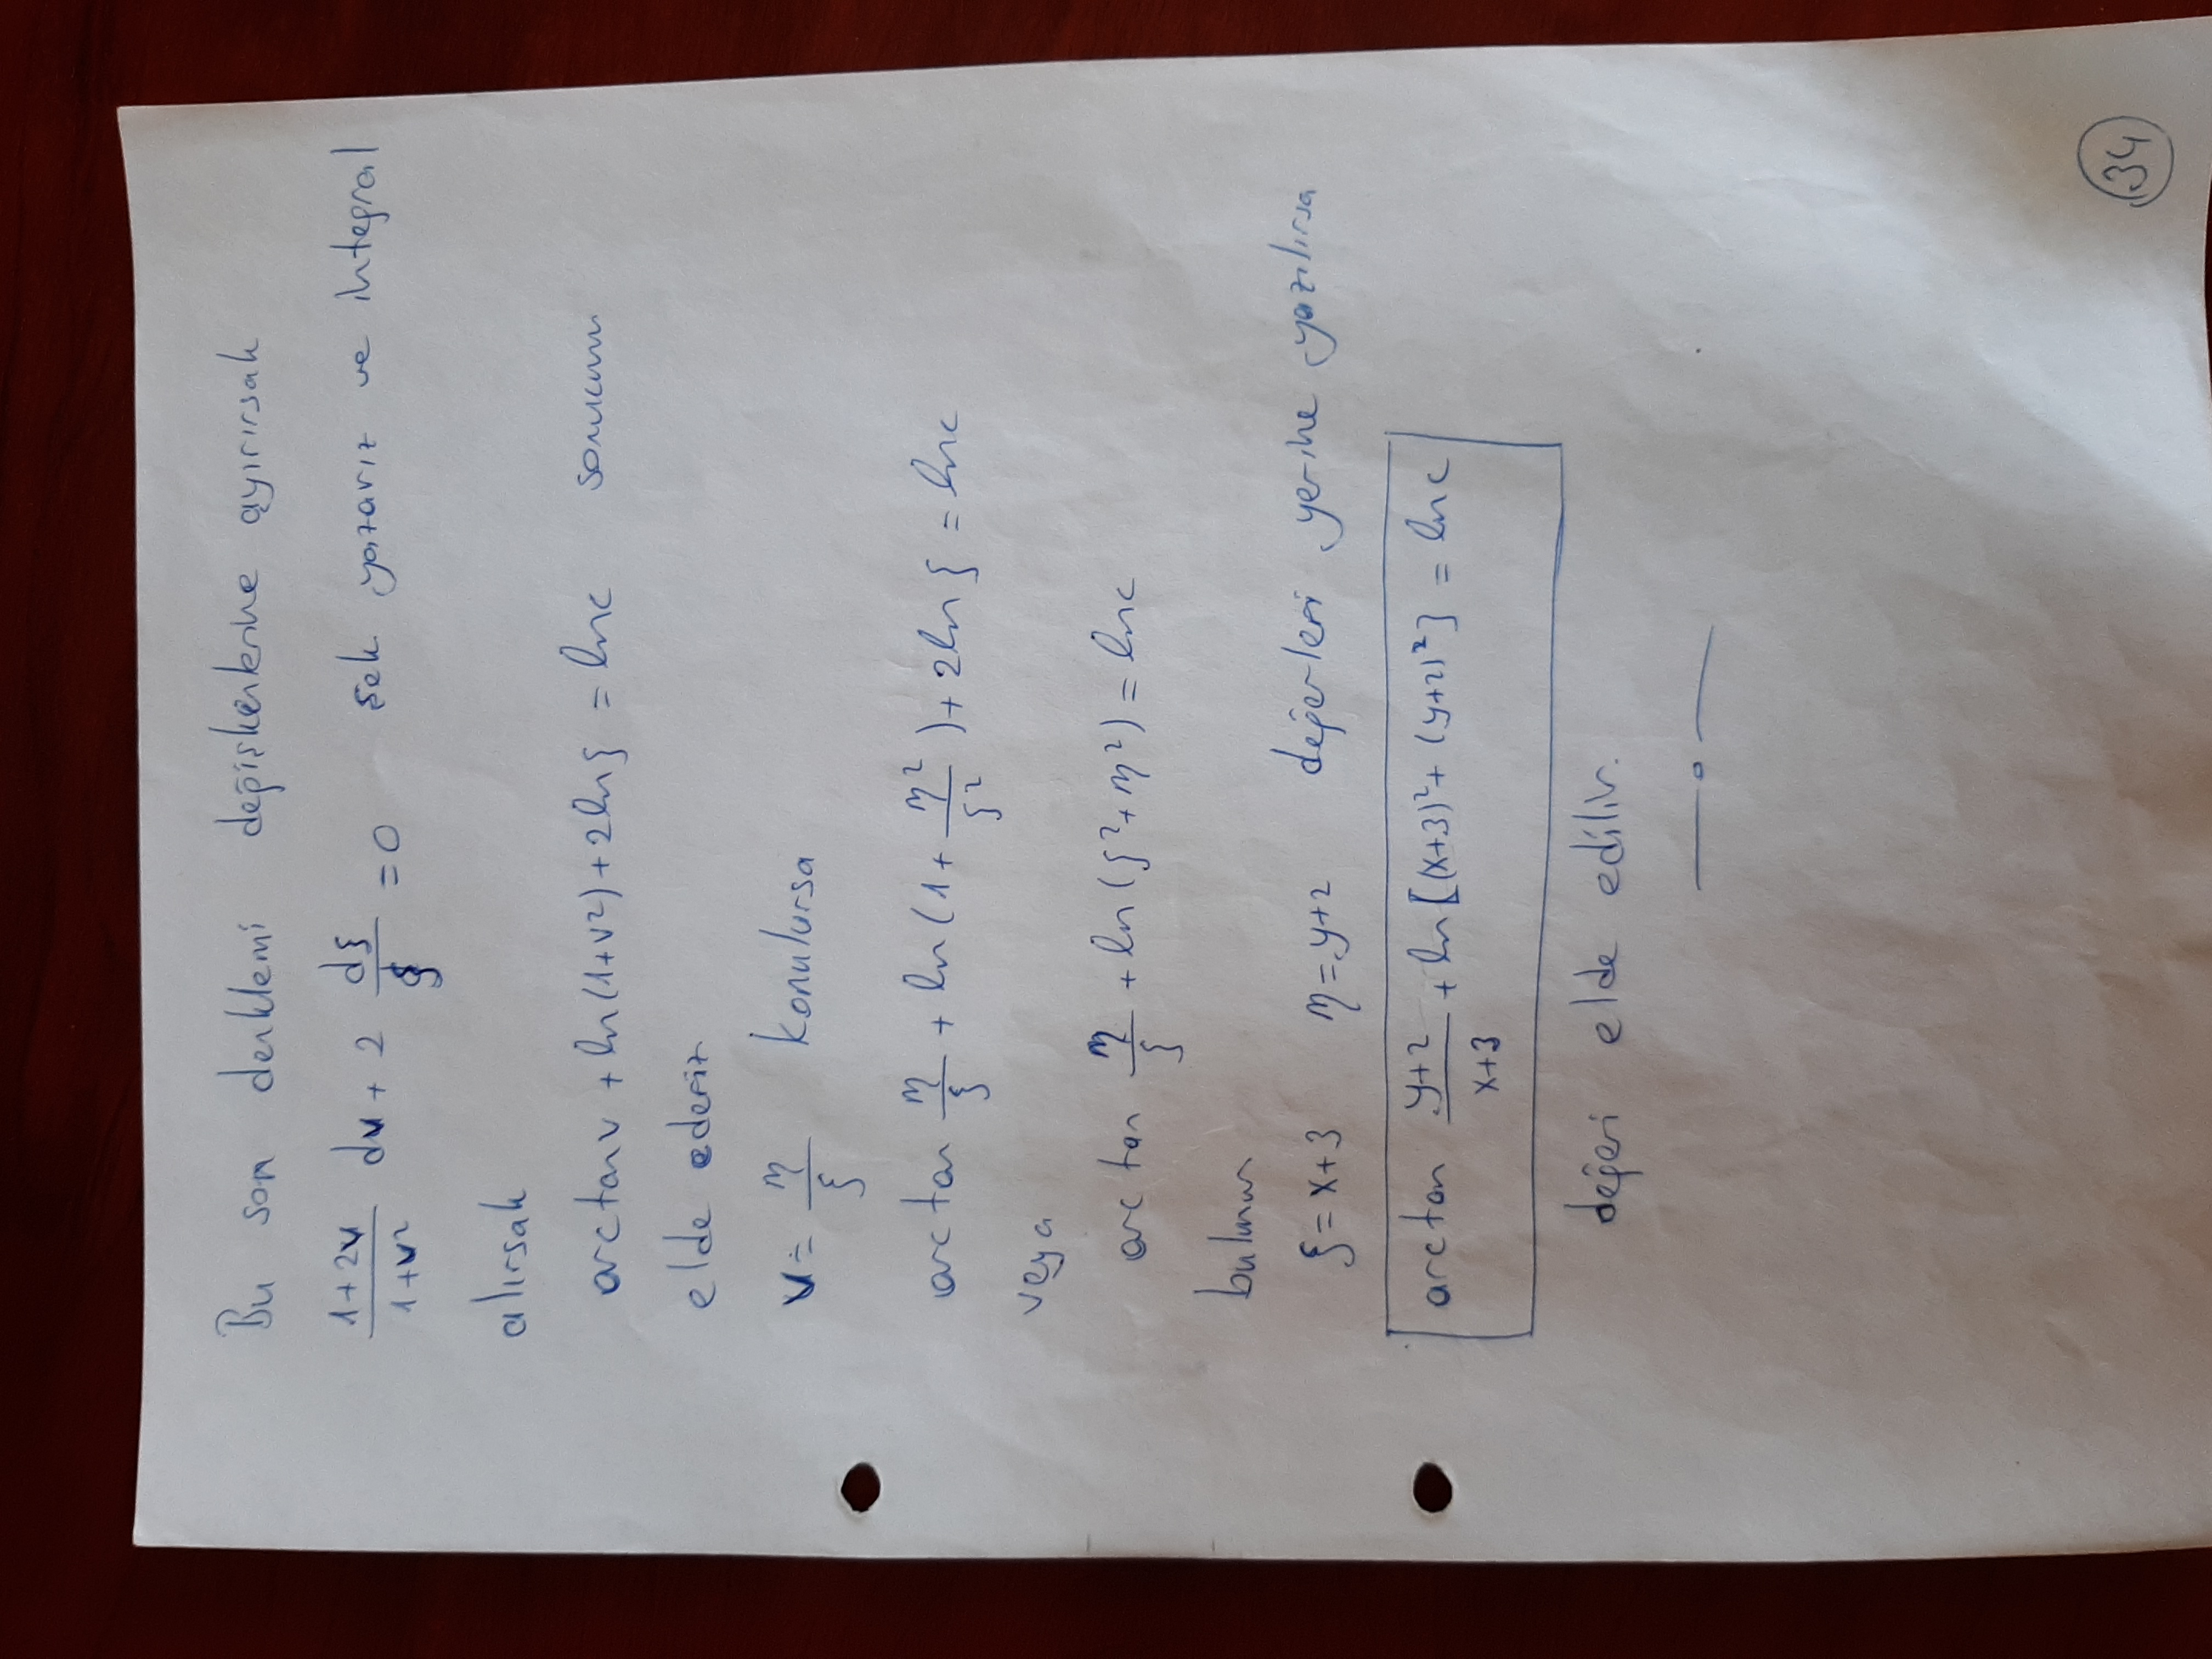 Bu son denklemi değişkenlerine ayırırsak
(1+2v)/(1+v²) dv + 2 dξ/ξ = 0 şek yazarız ve integral
alırsak
arctanv + ln(1+v²) + 2lnξ = lnc sonucunu
elde ederiz
v = η/ξ konulursa
arctan η/ξ + ln(1 + η²/ξ²) + 2lnξ = lnc
veya
arctan η/ξ + ln(ξ²+η²) = lnc
bulunur
ξ = x+3 η = y+2 değerleri yerine yazılırsa
arctan (y+2)/(x+3) + ln[(x+3)² + (y+2)²] = lnc
değeri elde edilir.
34